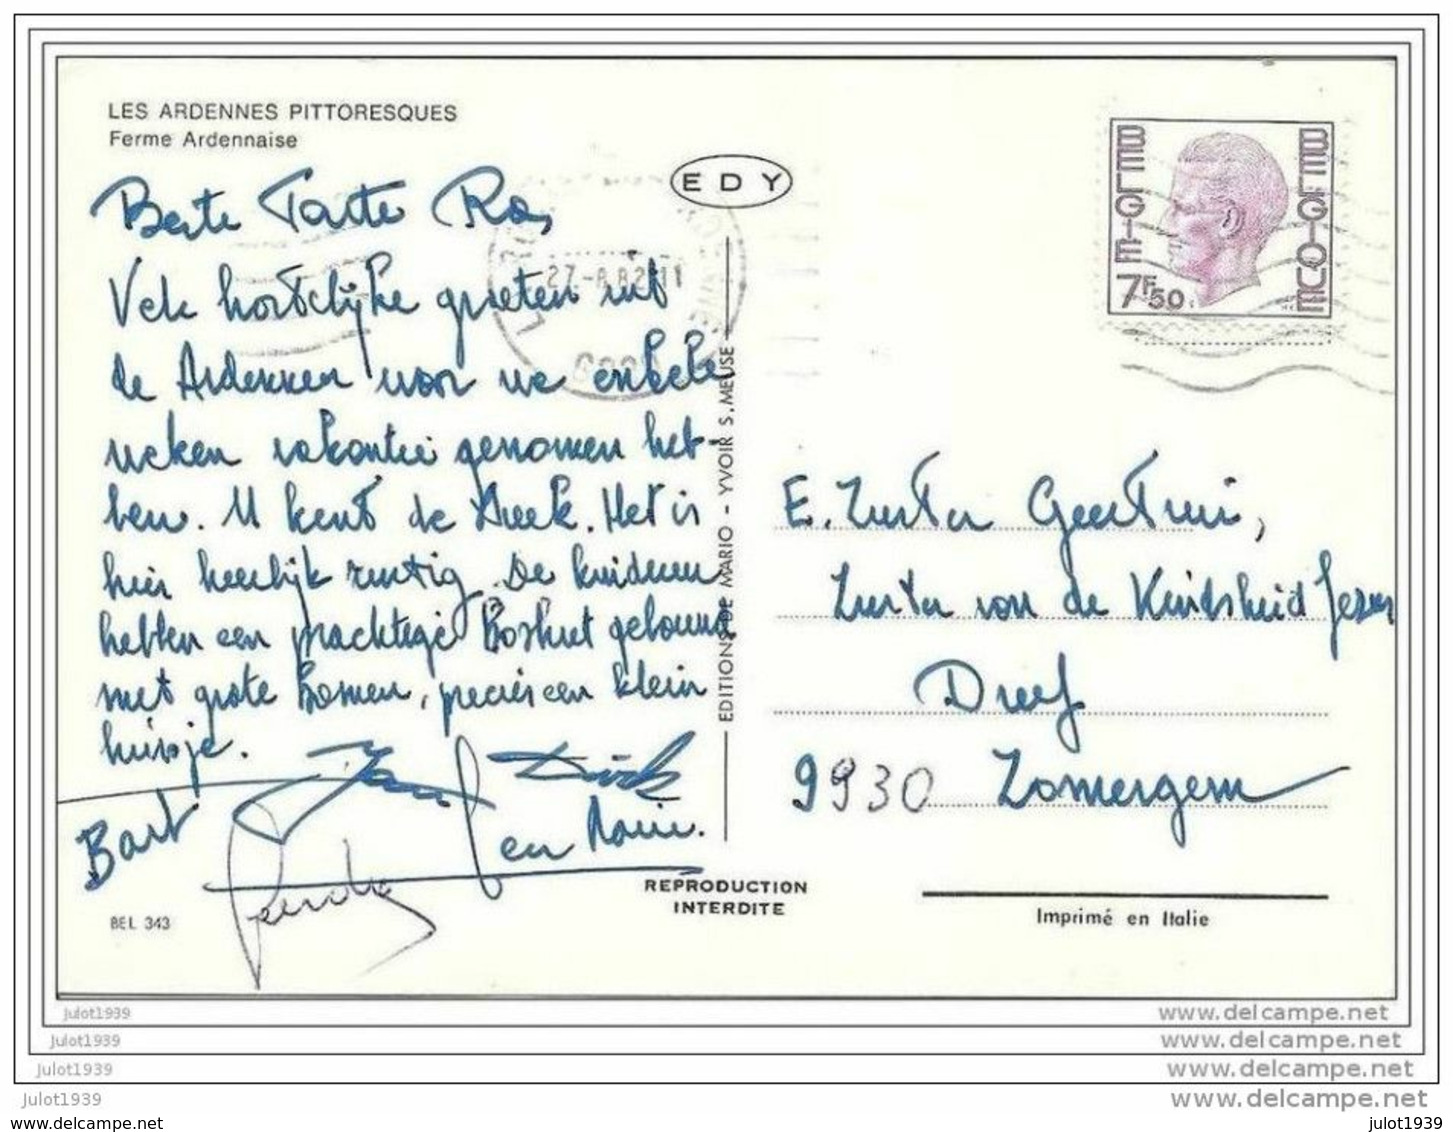 LES ARDENNES PITTORESQUES
Ferme Ardennaise
EDY
BELGIE
BELGIQUE
7F50
27.-8.82
Beste Tante Ro,
Vele hartelijke groeten uit
de Ardennen waar we enkele
weken vakantie genomen heb-
ben. U kent de streek. Het is
hier heerlijk rustig. De kinderen
hebben een prachtige Boshut gebouwd
met grote bomen, precies een klein
huisje.
Bart
Dirk
en
EDITIONS DE MARIO - YVOIR S. MEUSE
E. Zuster Geertrui,
Zuster van de Kindsheid Jezus
Dreef
9930 Zomergem
REPRODUCTION
INTERDITE
BEL 343
Imprimé en Italie
julot1939
www.delcampe.net
julot1939
www.delcampe.net
julot1939
www.delcampe.net
julot1939
www.delcampe.net
www.delcampe.net
julot1939